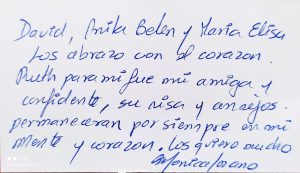 David, Anita Belen y Maria Elisa
Los abrazo con el corazon.
Ruth para mi fue mi amiga y
confidente, su risa y consejos.
permaneceran por siempre en mi
mente y corazon. Los quiero mucho
Monica Lozano